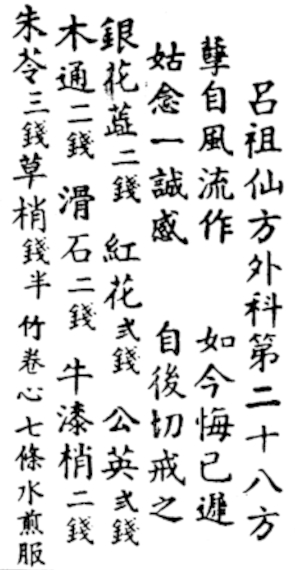 呂祖仙方外科第二十八方
孽自風流作 如今悔已遲
姑念一誠感 自後切戒之
銀花蕋二錢 紅花弍錢 公英弍錢
木通二錢 滑石二錢 牛漆梢二錢
朱苓三錢草梢錢半 竹卷心七條水煎服